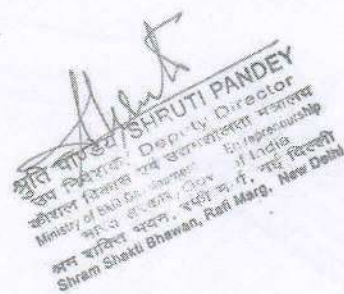 श्रुति पाण्डेय/SHRUTI PANDEY
उप निदेशक/Deputy Director
कौशल विकास एवं उद्यमशीलता मंत्रालय
Ministry of Skill Entrepreneurship
भारत सरकार/Gov of India
श्रम शक्ति भवन, रफी मार्ग, नई दिल्ली
Shram Shakti Bhawan, Rafi Marg, New Delhi